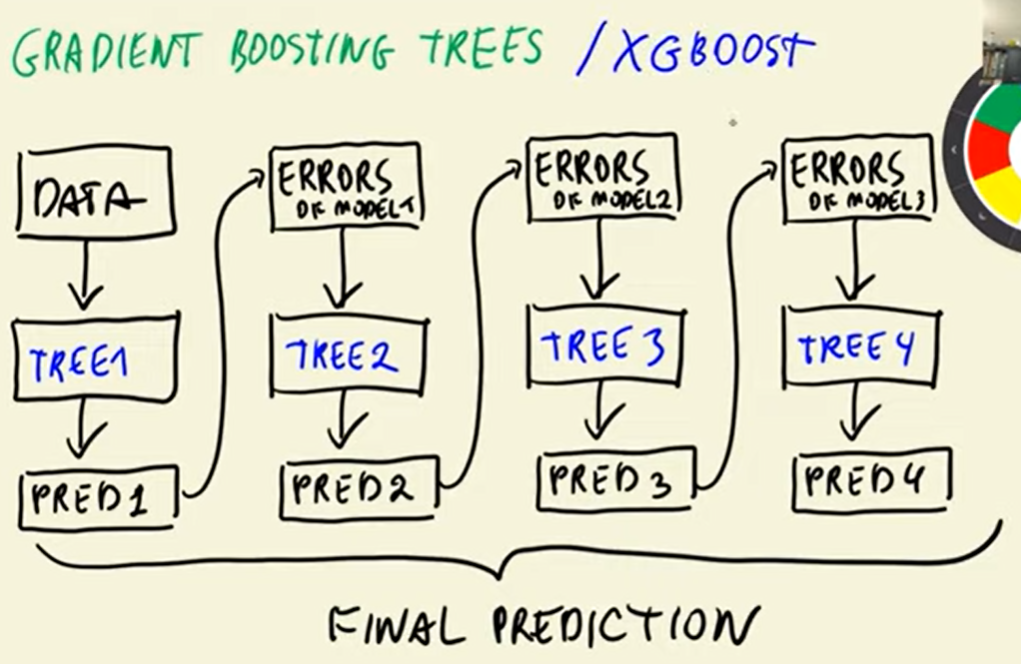 GRADIENT BOOSTING TREES / XGBOOST
DATA
TREE1
PRED1
ERRORS
OF MODEL1
TREE2
PRED2
ERRORS
OF MODEL2
TREE 3
PRED 3
ERRORS
OF MODEL3
TREE 4
PRED 4
FINAL PREDICTION